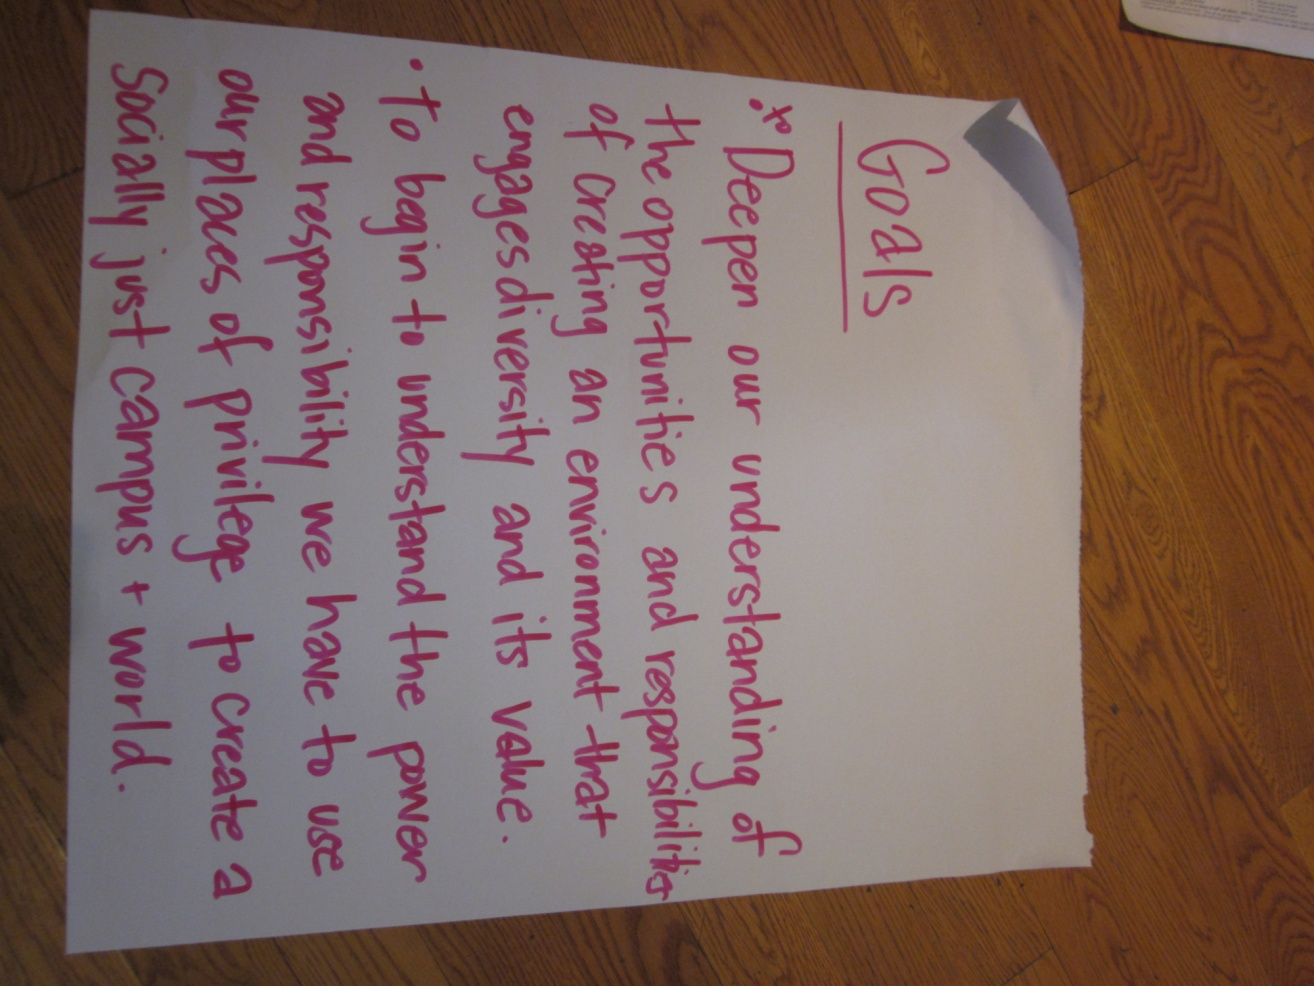 Goals
• To Deepen our understanding of
the opportunities and responsibilities
of creating an environment that
engages diversity and its value.
• To begin to understand the power
and responsibility we have to use
our places of privilege to create a
Socially just campus + world.